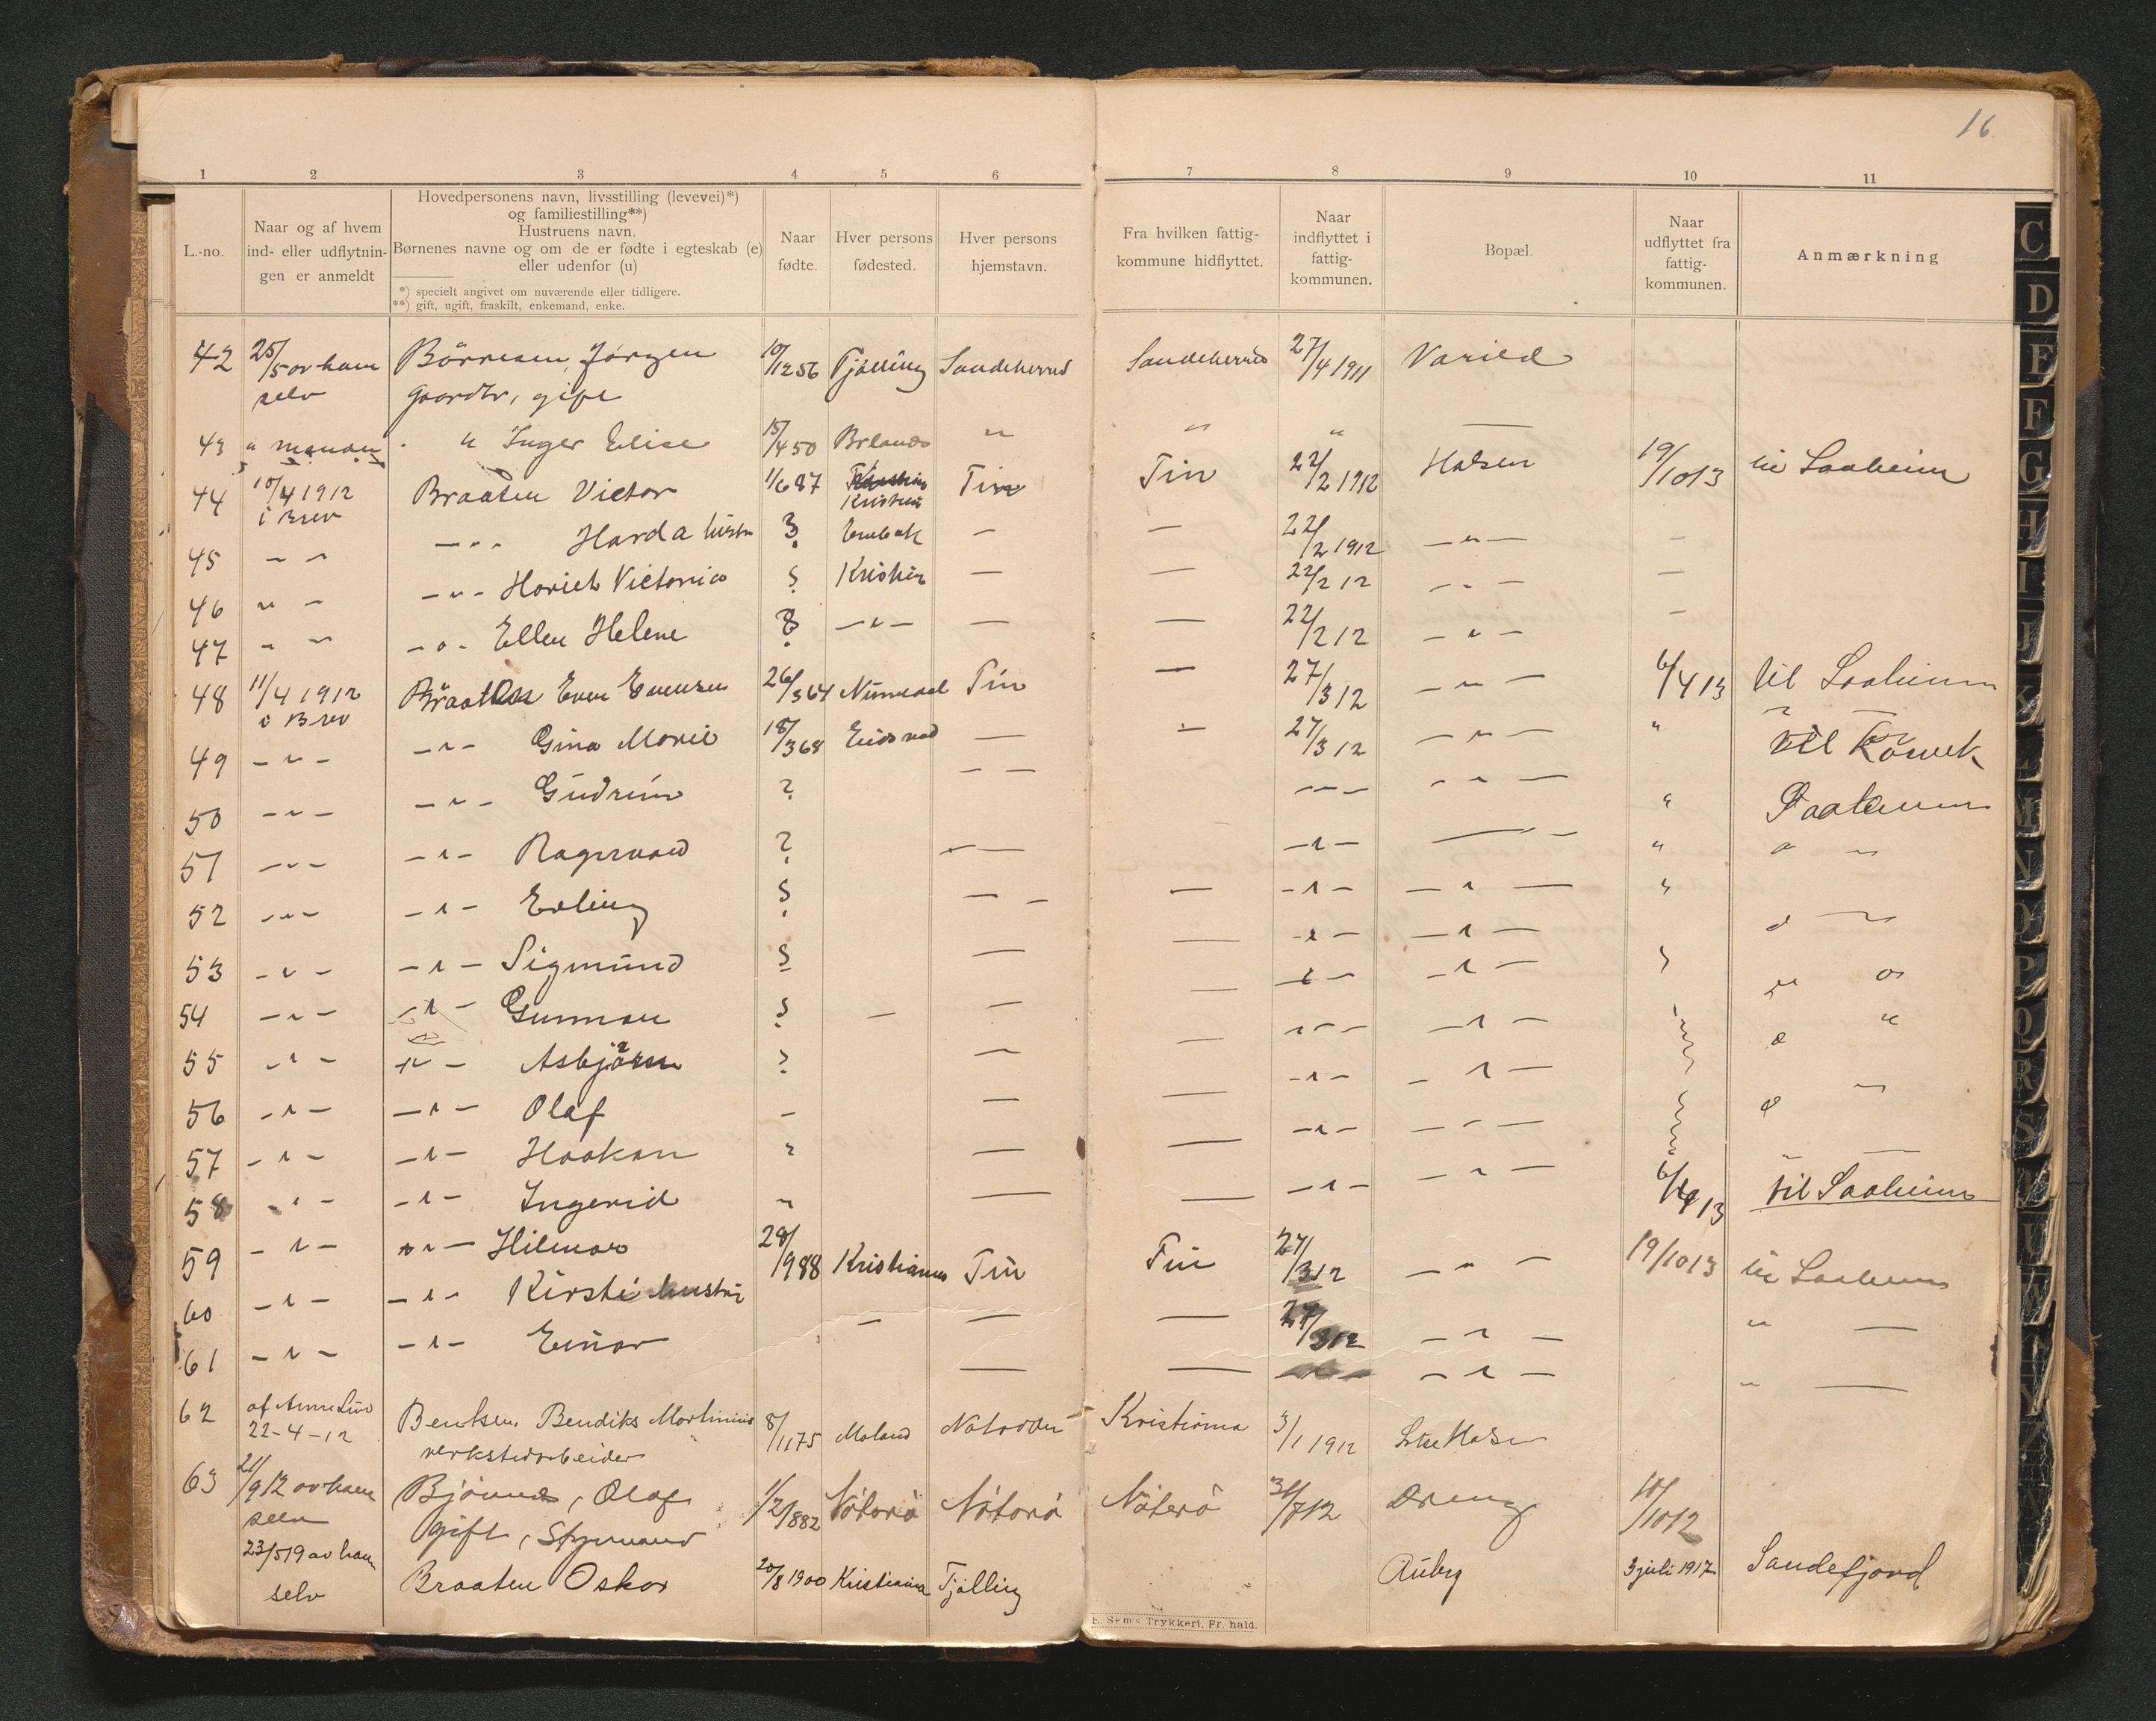 16
1 2 3 4 5 6 7 8 9 10 11
L.-no.
Naar og af hvem
ind- eller udflytnin-
gen er anmeldt
Hovedpersonens navn, livsstilling (levevei)*)
og familiestilling**)
Hustruens navn.
Børnenes navne og om de er fødte i egteskab (e)
eller udenfor (u)
*) specielt angivet om nuværende eller tidligere.
**) gift, ugift, fraskilt, enkemand, enke.
Naar
fødte.
Hver persons
fødested.
Hver persons
hjemstavn.
Fra hvilken fattig-
kommune hidflyttet.
Naar
indflyttet i
fattig-
kommunen.
Bopæl.
Naar
udflyttet fra
fattig-
kommunen.
Anmærkning
42 25/5 av ham Börresen, Jörgen 10/12 56 Tjölling Sandeherred Sandeherred 27/4 1911 Varild
selv Gaardbr, gift
43 " manden " Inger Elise 15/4 50 " " "
44 10/4 1912 Braaten Victor 1/6 87 Kristiania Tin Tin 22/2 1912 Halsen 19/10 13 til Saaheim
i Brev
45 - " - " - hustru ? - - 22/2 1912 - " - -
46 " - - " - Victoria ? Kristia - - 22/2 12 - " - -
47 " - - " - Ellen Helene ? - " - - - 22/2 12 - " - -
48 11/4 1912 Braaten Even Evensen 26/3 64 Tin - 27/3 12 - " - 6/4 13 til Saaheim
i Brev
49 - " - - " - Gina Marie 18/3 68 Eidsvold - - 27/3 12 - " - " til
50 - " - - " - Gudrun ? - - - " - - " - " Saaheim
51 - " - - " - Ragnvald ? - - " - - " - " " -
52 - " - - " - Erling ? - - - " - - " - " " -
53 - " - - " - Sigmund ? - - - " - - " - " " "
54 - " - - " - Gunnar ? - - - - " - - " - " "
55 - " - - " - Asbjörn ? - - - " - - " - " "
56 - " - - " - Olaf - - - - " - - " - " "
57 - " - - " - Haakon " - - - " - - " - " -
58 - " - - " - Ingerid " - - - " - - " - 6/4 13 til Saaheim
59 - " - - " - Hilmar 28/9 88 Kristiania Tin Tin 27/3 12 - " - 19/10 13 til Saaheim
60 - " - - " - Kirsti hustru - - - 27/3 12 - " - " -
61 - " - - " - Einar - - - " - - " - " -
62 22-4-12 Bentsen, Bendiks Martinius 8/11 75 Notodden Kristiania 3/1 1912
verkstedarbeider
63 21/9 12 av ham , Olaf 1/2 1882 Nöterö Nöterö Nöterö 31/7 12 10/10 12
selv gift, Styrmand
23/5 19 av ham
selv Braaten Oskar 20/8 1900 Kristiania Tjölling Auby 3 juli 1917 Sandefjord
E. Sem's Trykkeri, Fr. hald.
C
D
E
F
G
H
I
J
K
L
M
N
O
P
Q
R
S
T
U
W